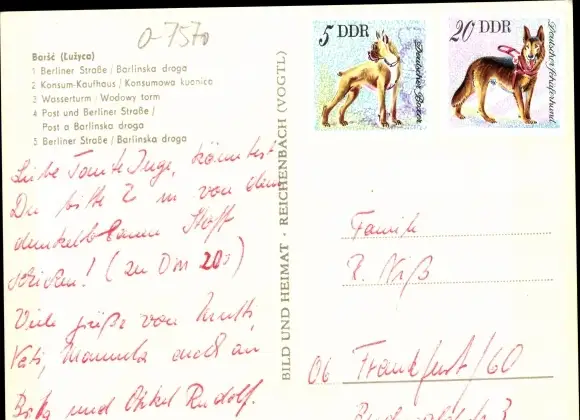 0-7570
Baršć (Łužyca)
1 Berliner Straße / Barlinska droga
2 Konsum-Kaufhaus / Konsumowa kupnica
3 Wasserturm / Wodowy torm
4 Post und Berliner Straße /
Post a Barlinska droga
5 Berliner Straße / Barlinska droga
Liebe Tante Inge, könntest
Du bitte 2 m von dem
dunkelblauen Stoff
schicken! (zu DM 20,-)
Viele Grüße von Mutti,
Vati, auch an
und Onkel Rudolf.
BILD UND HEIMAT · REICHENBACH (VOGTL)
5 DDR
Deutscher Boxer
20 DDR
Deutscher Schäferhund
Familie
R. Niß
Frankfurt/60